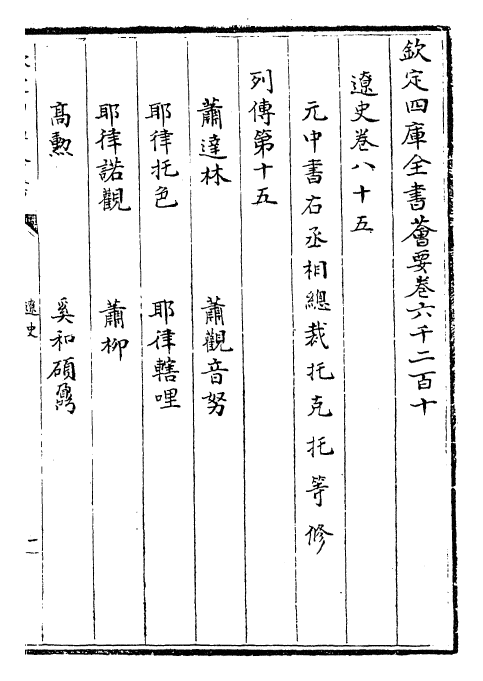 欽定四庫全書薈要卷六千二百十
遼史卷八十五
元中書右丞相總裁托克托等修
列傳第十五
蕭達林 蕭觀音努
耶律托色 耶律轄哩
耶律諾觀 蕭柳
高勲 奚和碩鼐
遼史 一